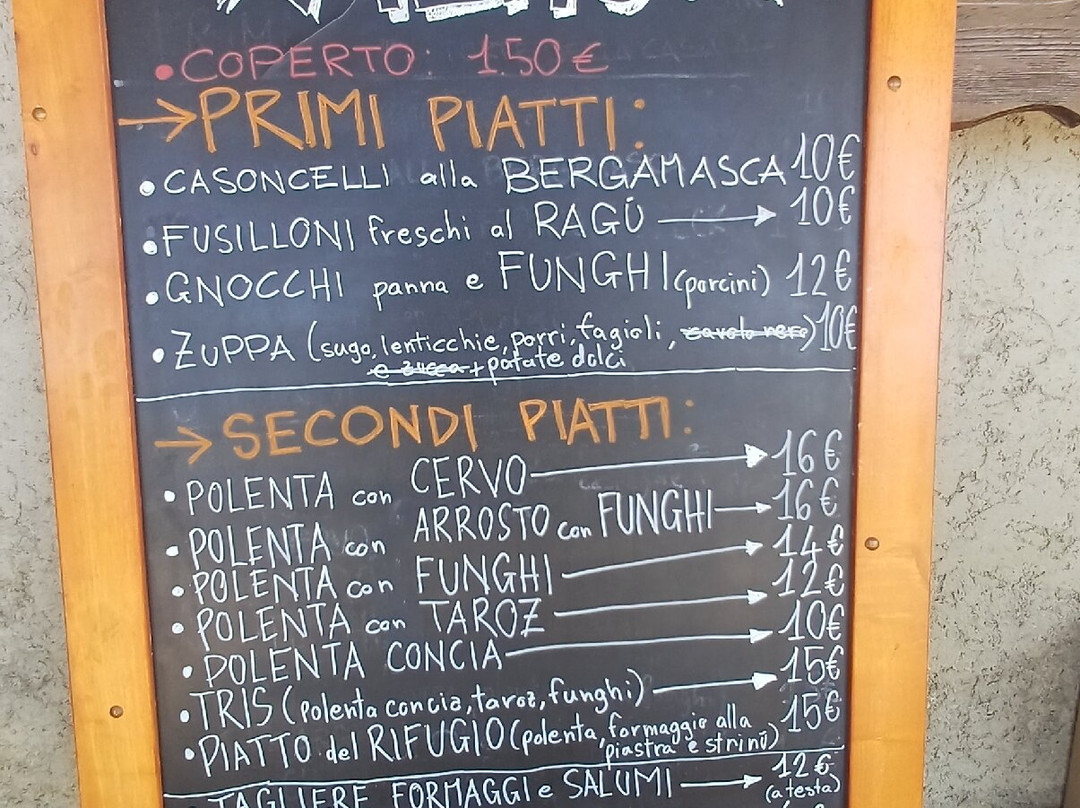 • COPERTO: 1.50€
→ PRIMI PIATTI:
• CASONCELLI alla BERGAMASCA 10€
• FUSILLONI freschi al RAGÙ → 10€
• GNOCCHI panna e FUNGHI (porcini) 12€
• ZUPPA (sugo, lenticchie, porri, fagioli, cavolo nero) 10€
e zucca + patate dolci
→ SECONDI PIATTI:
• POLENTA con CERVO → 16€
• POLENTA con ARROSTO con FUNGHI → 16€
• POLENTA con FUNGHI → 14€
• POLENTA con TAROZ → 12€
• POLENTA CONCIA → 10€
• TRIS (polenta concia, taroz, funghi) → 15€
• PIATTO del RIFUGIO (polenta, formaggio alla 15€
piastra e strinù)
TAGLIERE FORMAGGI e SALUMI → 12€
(a testa)